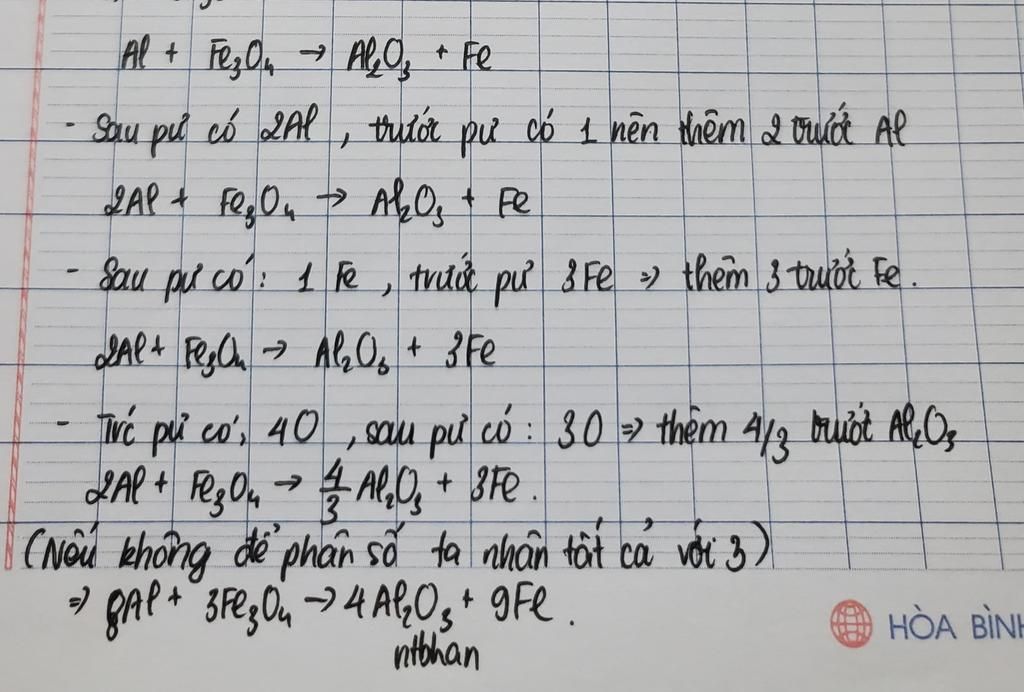 Al + Fe₃O₄ → Al₂O₃ + Fe
- Sau pư có 2Al , trước pư có 1 nên thêm 2 trước Al
2Al + Fe₃O₄ → Al₂O₃ + Fe
- Sau pư có : 1 Fe , trước pư 3Fe ⇒ thêm 3 trước Fe.
2Al + Fe₃O₄ → Al₂O₃ + 3Fe
- Trc pư có, 4O , sau pư có : 3O ⇒ thêm 4/3 trước Al₂O₃
2Al + Fe₃O₄ → 4/3 Al₂O₃ + 3Fe .
(Nếu không để phân số ta nhân tất cả với 3)
⇒ 8Al + 3Fe₃O₄ → 4Al₂O₃ + 9Fe .
ntbhan
HÒA BÌNH